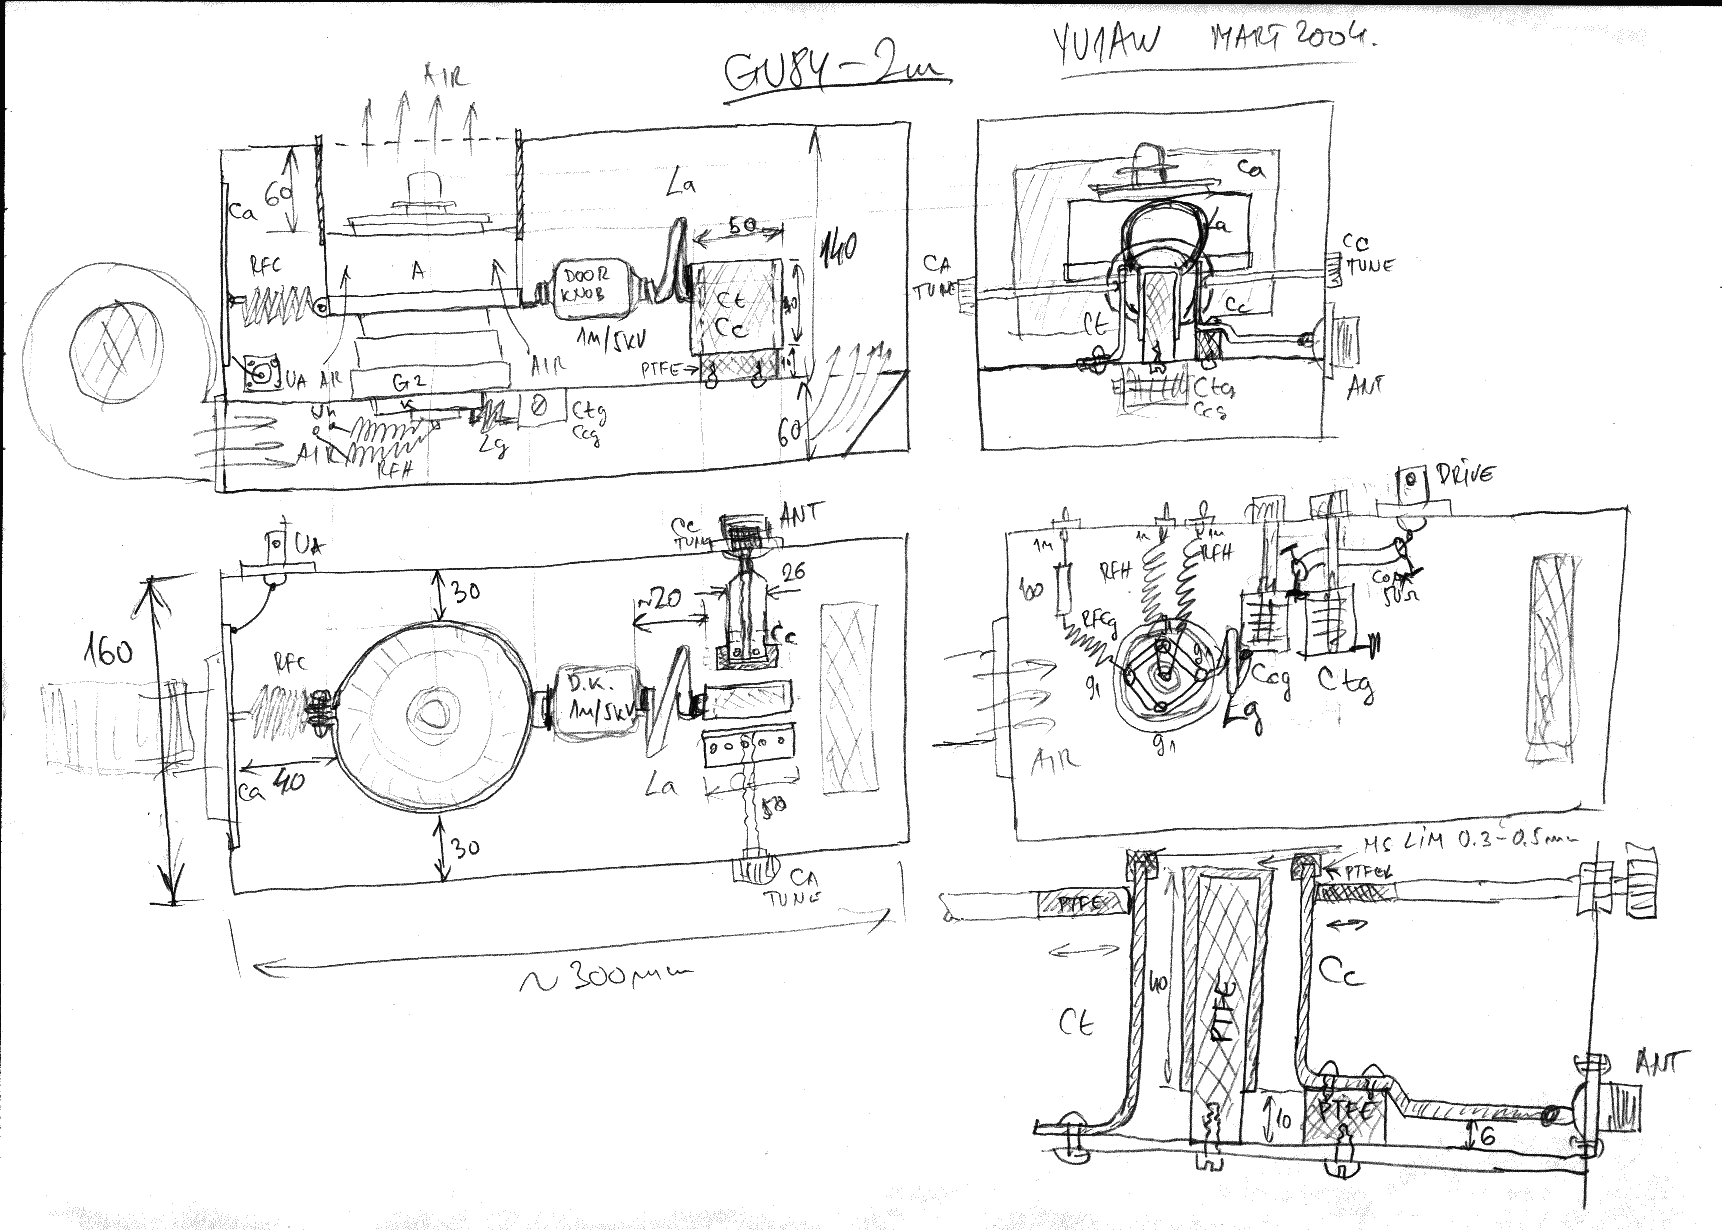 GU84-2m
YU1AW MART 2004.
AIR
60
Ca
RFC
A
DOOR
KNOB
1n/5KV
La
50
Ct
Cc
40
10
PTFE
140
60
UA
AIR
G2
K
AIR
Uh
AIR
RFH
Lg
Ctg
Ccg
Ca
La
CA
TUNE
CC
TUNE
Ct
Cc
ANT
Ctg
Ccg
UA
30
160
RFC
40
Ca
30
D.K.
1n/5KV
~20
La
Cc
TUNE
ANT
26
Cc
50
CA
TUNE
~300mm
DRIVE
1n
1n
1n
100
RFH
RFH
RFCg
g1
g1
g1
Lg
Ccg
Ctg
COAX
50Ω
AIR
MS LIM 0.3-0.5mm
PTFE
PTFE
Ct
40
PTFE
Cc
PTFE
10
6
ANT